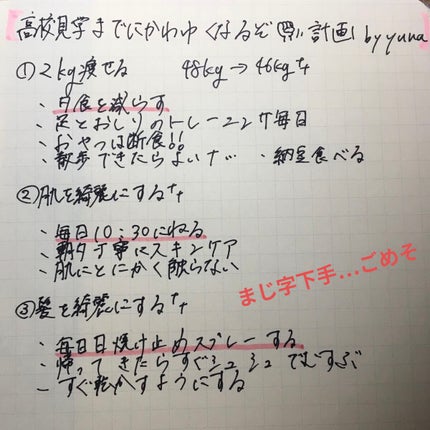 高校見学までにかわゆくなるぞ 計画 by yuna
① 2kg痩せる 48kg→46kg
・夕食を減らす
・足とおしりのトレーニング毎日
・おやつは断食!!
・散歩できたらよい ・納豆食べる
② 肌を綺麗にする
・毎日10:30にねる
・朝夕丁寧にスキンケア
・肌にとにかく触らない
まじ字下手...ごめそ
③ 髪を綺麗にする
・毎日日焼け止めスプレーする
・帰ってきたらすぐシュシュでむすぶ
・すぐ乾かすようにする